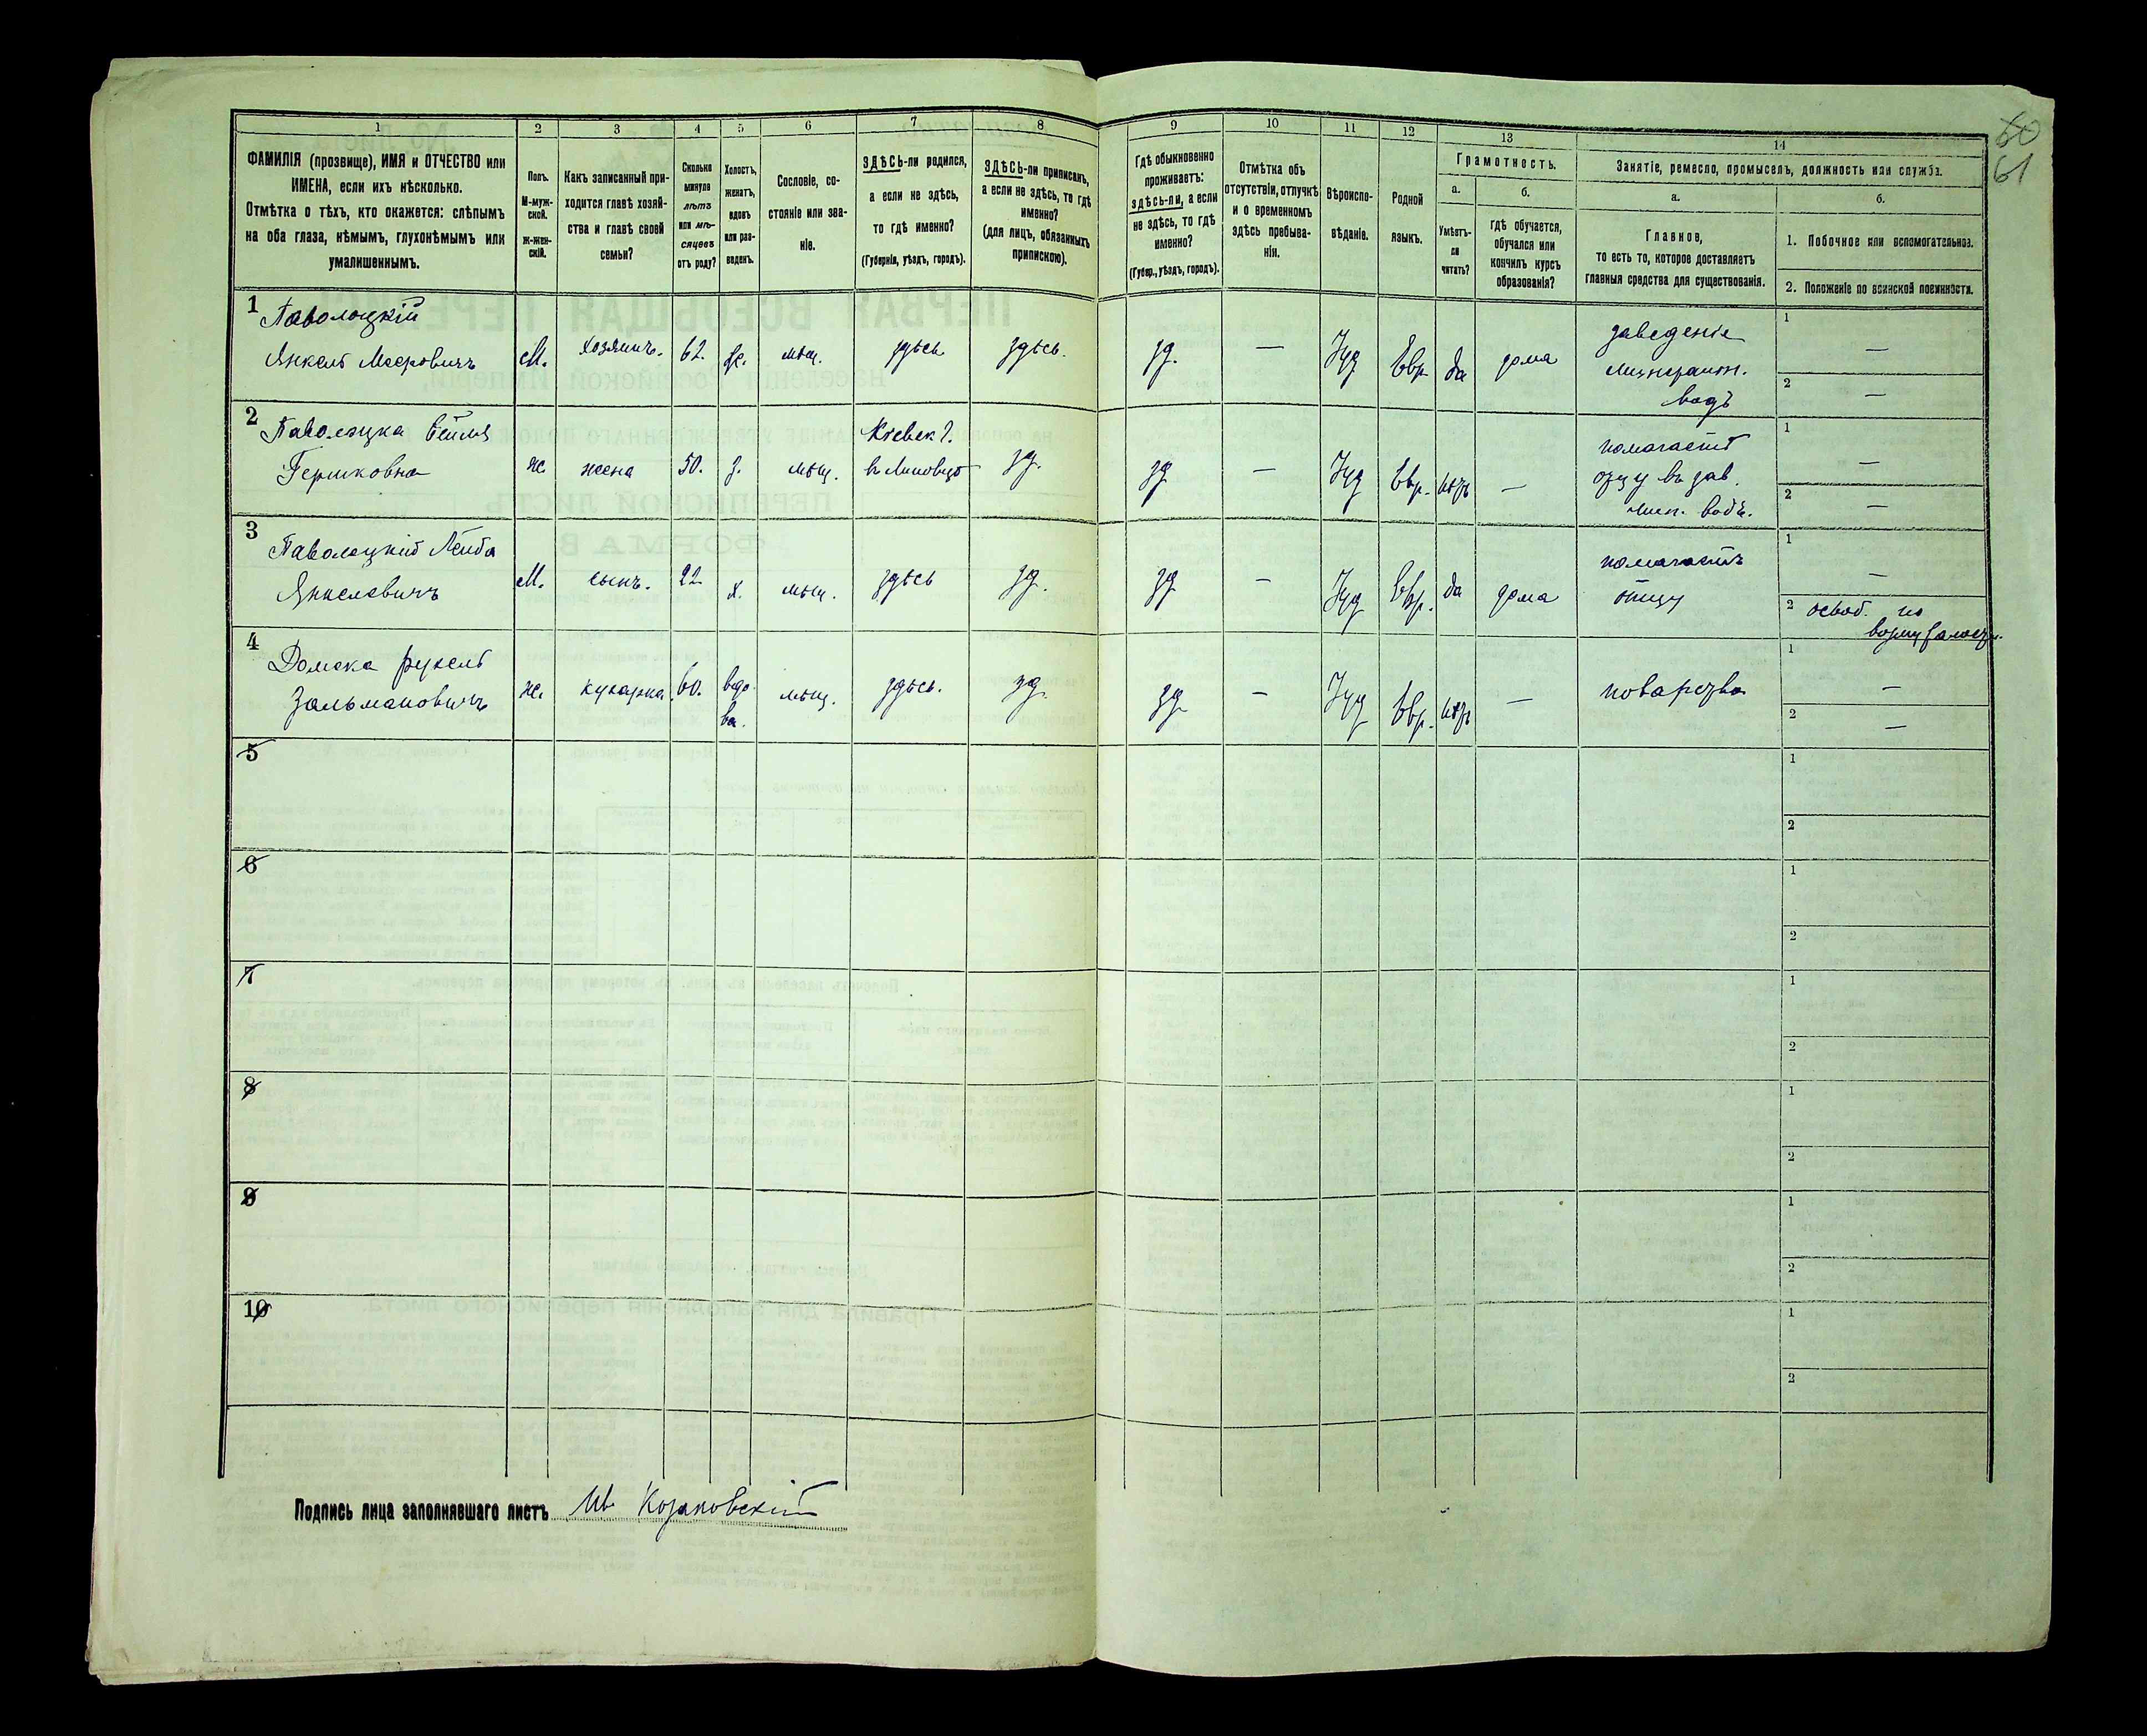 60
61
1 2 3 4 5 6 7 8 9 10 11 12 13 14
ФАМИЛІЯ (прозвище), ИМЯ и ОТЧЕСТВО или
ИМЕНА, если ихъ нѣсколько.
Отмѣтка о тѣхъ, кто окажется: слѣпымъ
на оба глаза, нѣмымъ, глухонѣмымъ или
умалишеннымъ.
Полъ.
М-муж-
ской.
ж-жен-
скій.
Какъ записанный при-
ходится главѣ хозяй-
ства и главѣ своей
семьи?
Сколько
минуло
лѣтъ
или мѣ-
сяцевъ
отъ роду?
Холостъ,
женатъ,
вдовъ
или раз-
веденъ.
Сословіе, со-
стояніе или зва-
ніе.
ЗДѢСЬ-ли родился,
а если не здѣсь,
то гдѣ именно?
(Губернія, уѣздъ, городъ).
ЗДѢСЬ-ли приписанъ,
а если не здѣсь, то гдѣ
именно?
(для лицъ, обязанныхъ
припискою).
Гдѣ обыкновенно
проживаетъ:
здѣсь-ли, а если
не здѣсь, то гдѣ
именно?
(Губер., уѣздъ, городъ).
Отмѣтка объ
отсутствіи, отлучкѣ
и о временномъ
здѣсь пребыва-
ніи.
Вѣроиспо-
вѣданіе.
Родной
языкъ.
Грамотность.
а.
Умѣетъ-
ли
читать?
б.
гдѣ обучается,
обучался или
кончилъ курсъ
образованія?
Занятіе, ремесло, промыселъ, должность или служба.
а.
Главное,
то есть то, которое доставляетъ
главныя средства для существованія.
б.
1. Побочное или вспомогательное.
2. Положеніе по воинской повинности.
1 Паволоцкій
Янкель Мееровичъ М. хозяинъ. 62. мѣщ. здѣсь здѣсь. зд. — Іуд Евр да дома
заведеніе
минерал.
водъ
1 —
2 —
2 Паволоцка Бейля
Гершковна ж жена 50. з. мѣщ.
Кіевск г.
въ Липовцѣ зд. зд — Іуд Евр. нѣтъ —
помагаетъ
отцу въ зав.
мин. водъ.
1 —
2 —
3 Паволоцкій Лейба
Янкелевичъ М. сынъ. 22 х. мѣщ. здѣсь зд. зд — Іуд Евр. да дома
помагаетъ
отцу
1 —
2 освоб. по
4 Домска рухель
Зальмановичъ ж. кухарка. 60. вдо-
ва. мѣщ. здѣсь. зд. зд — Іуд Евр. нѣтъ —
1 —
2 —
5 1
2
6 1
2
7 1
2
8 1
2
9 1
2
10 1
2
Подпись лица заполнявшаго листъ Ив Козаковскій